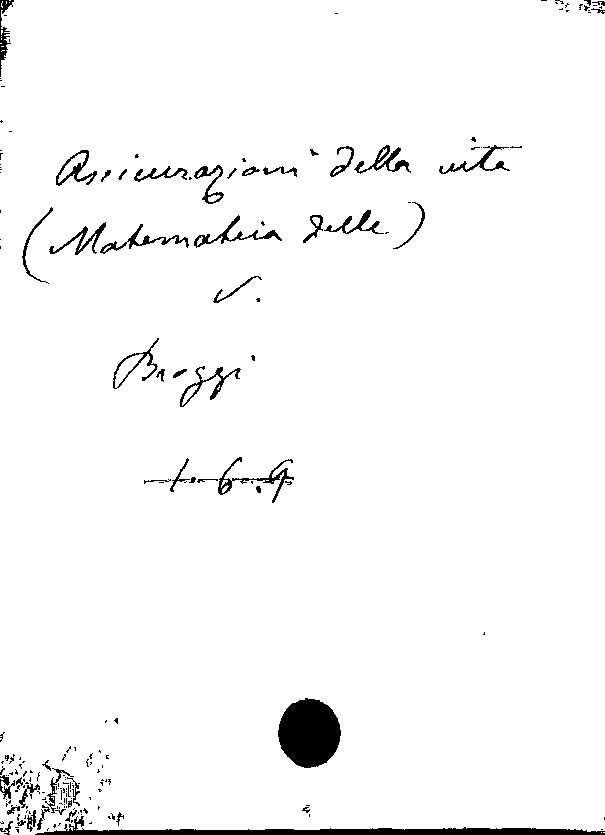 Assicurazioni della vita
(Matematica delle)
V.
Broggi
1.6.9